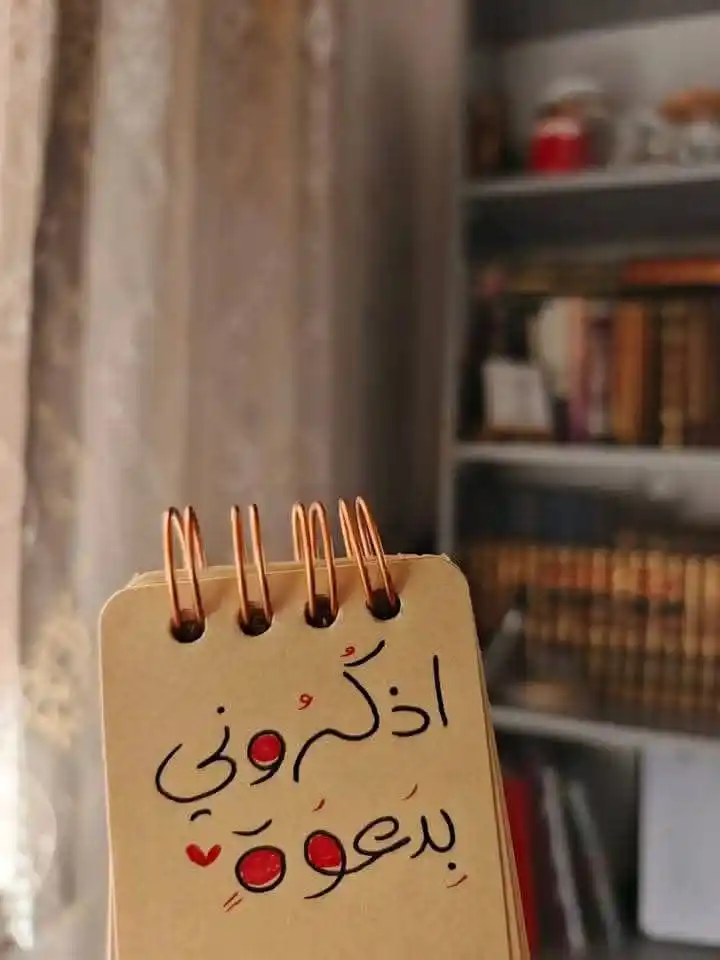 اذكُرُوني
بِدَعَوَةٍ